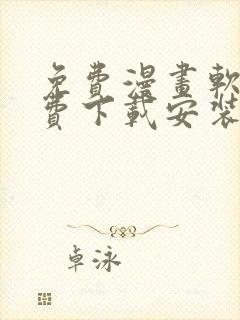 免費漫畫軟
費下載安裝
卓泳